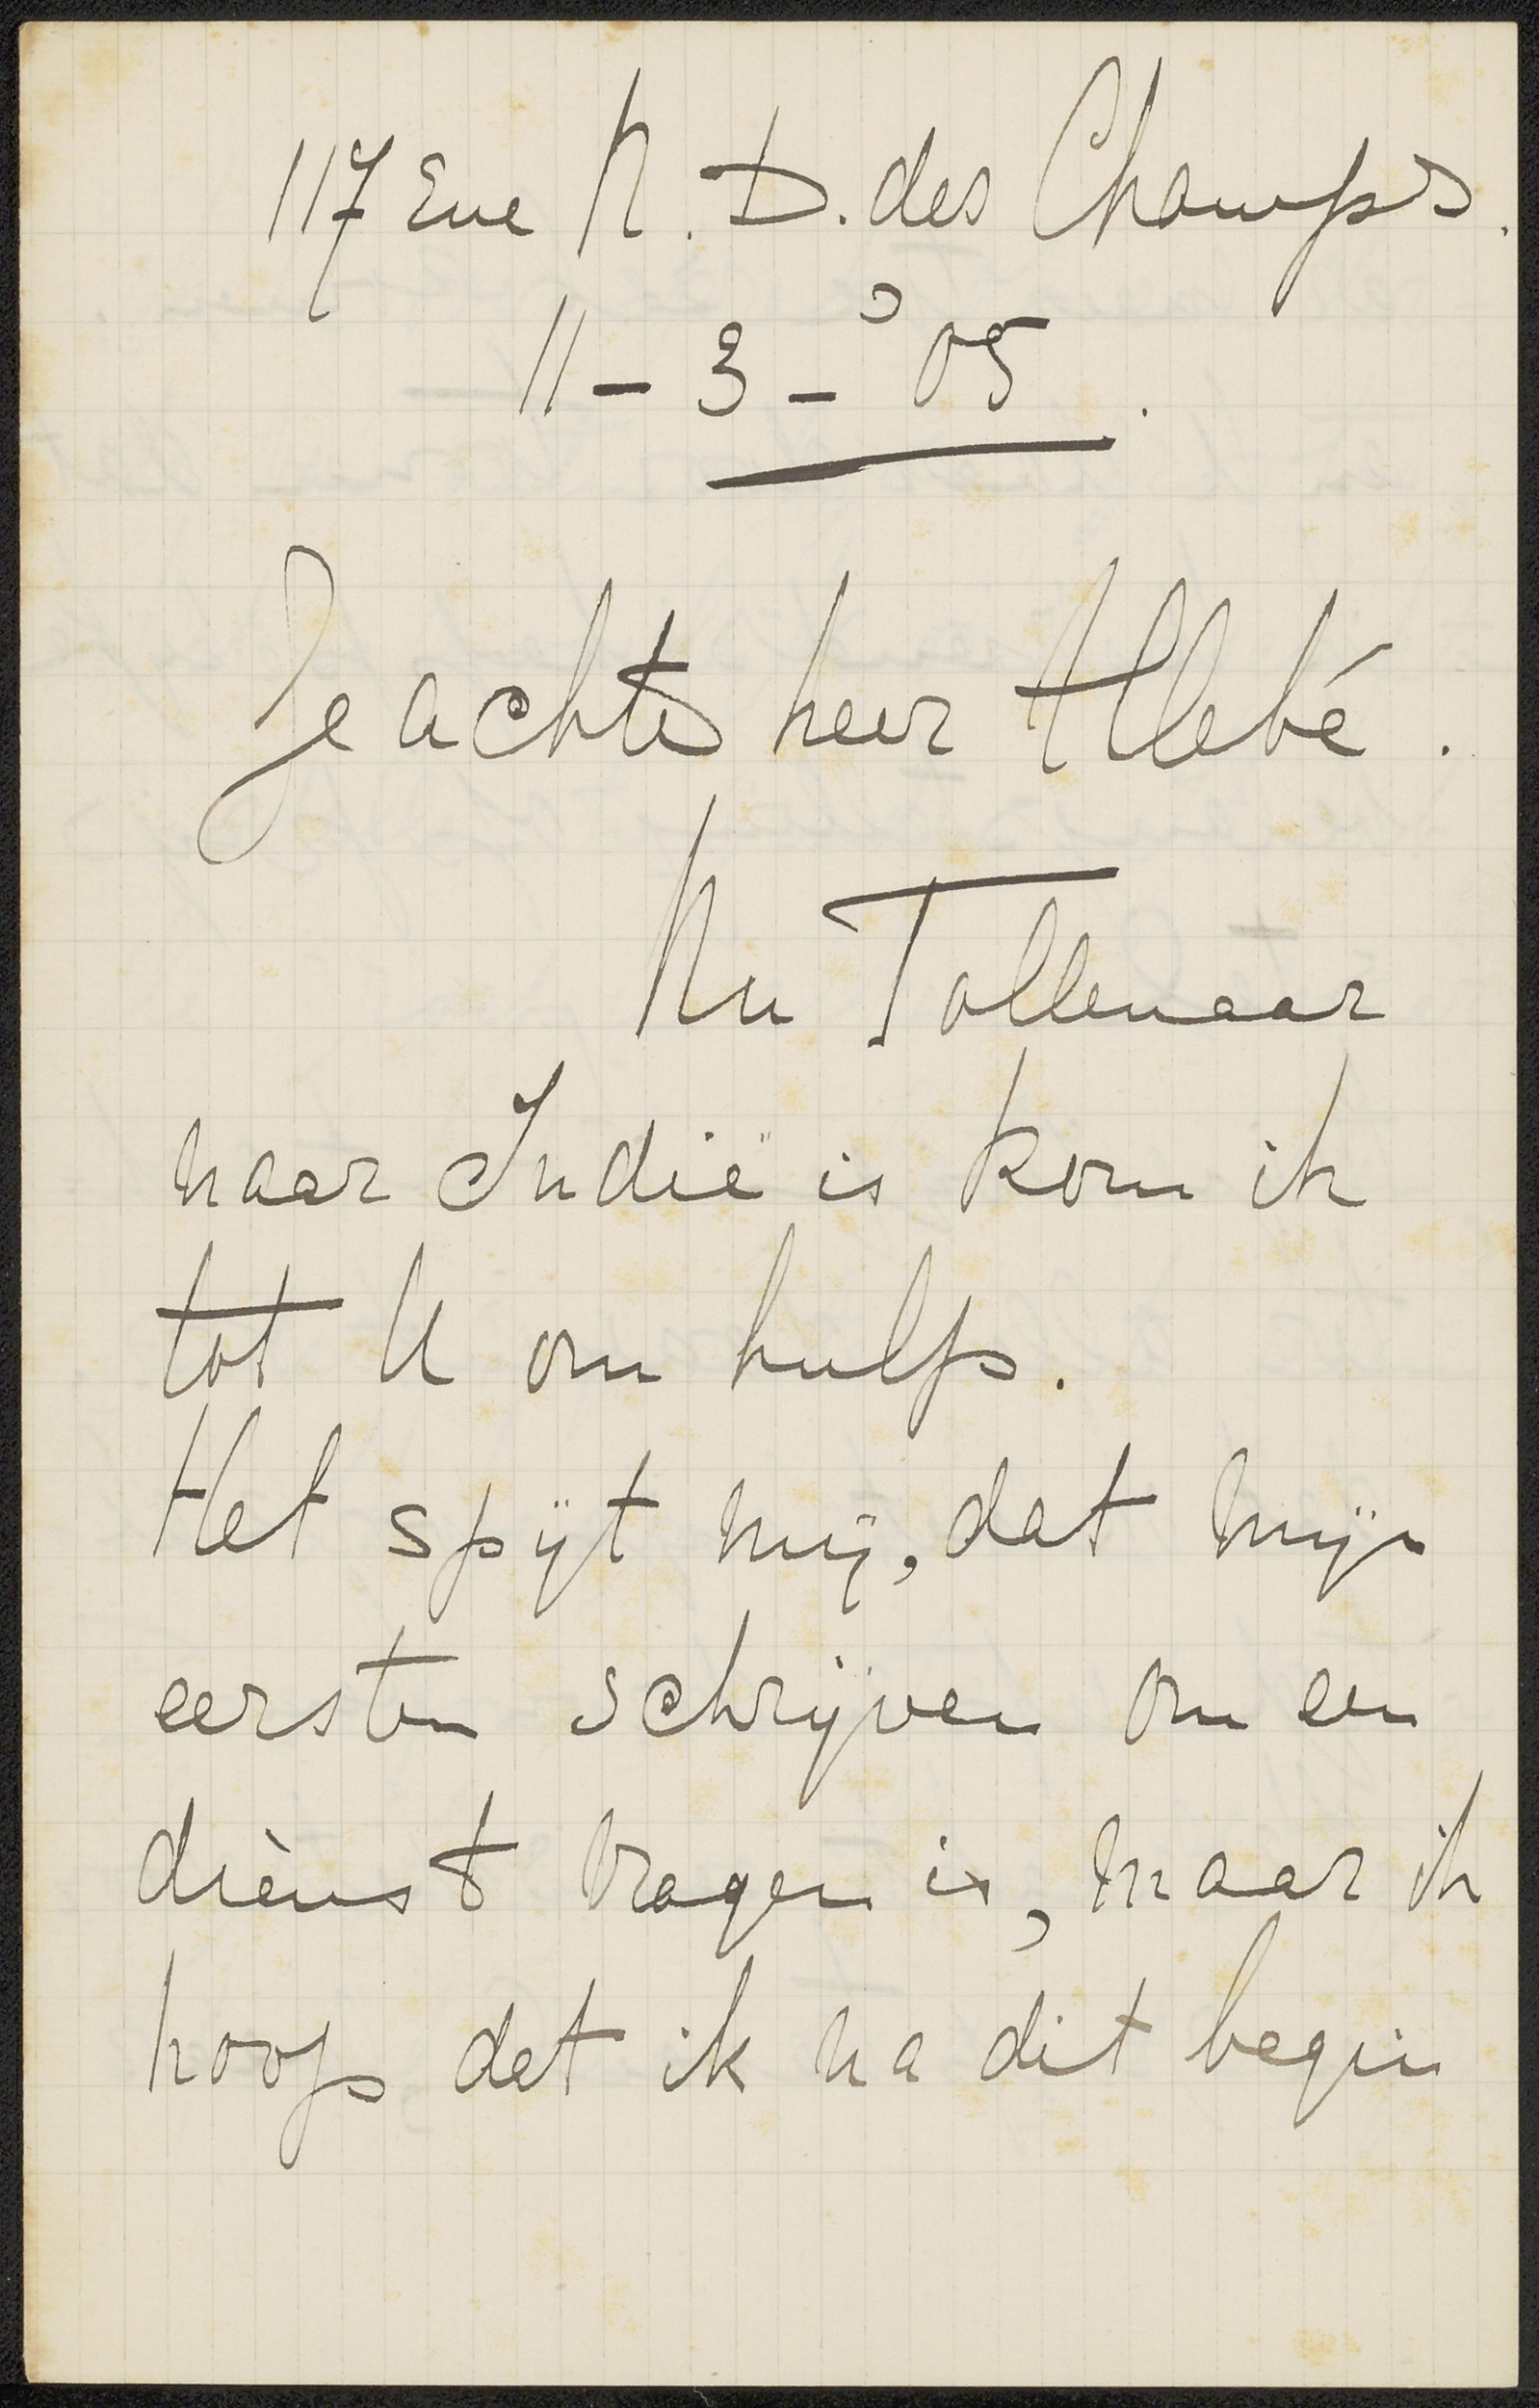 117 Rue N. D. des Champs.
11 - 3 - '05.
Geachte heer Allebé.
Nu Tollenaar
naar Indië is kom ik
tot U om hulp.
Het spijt mij, dat mijn
eersten schrijven om een
dienst vragen is, maar ik
hoop dat ik na dit begin